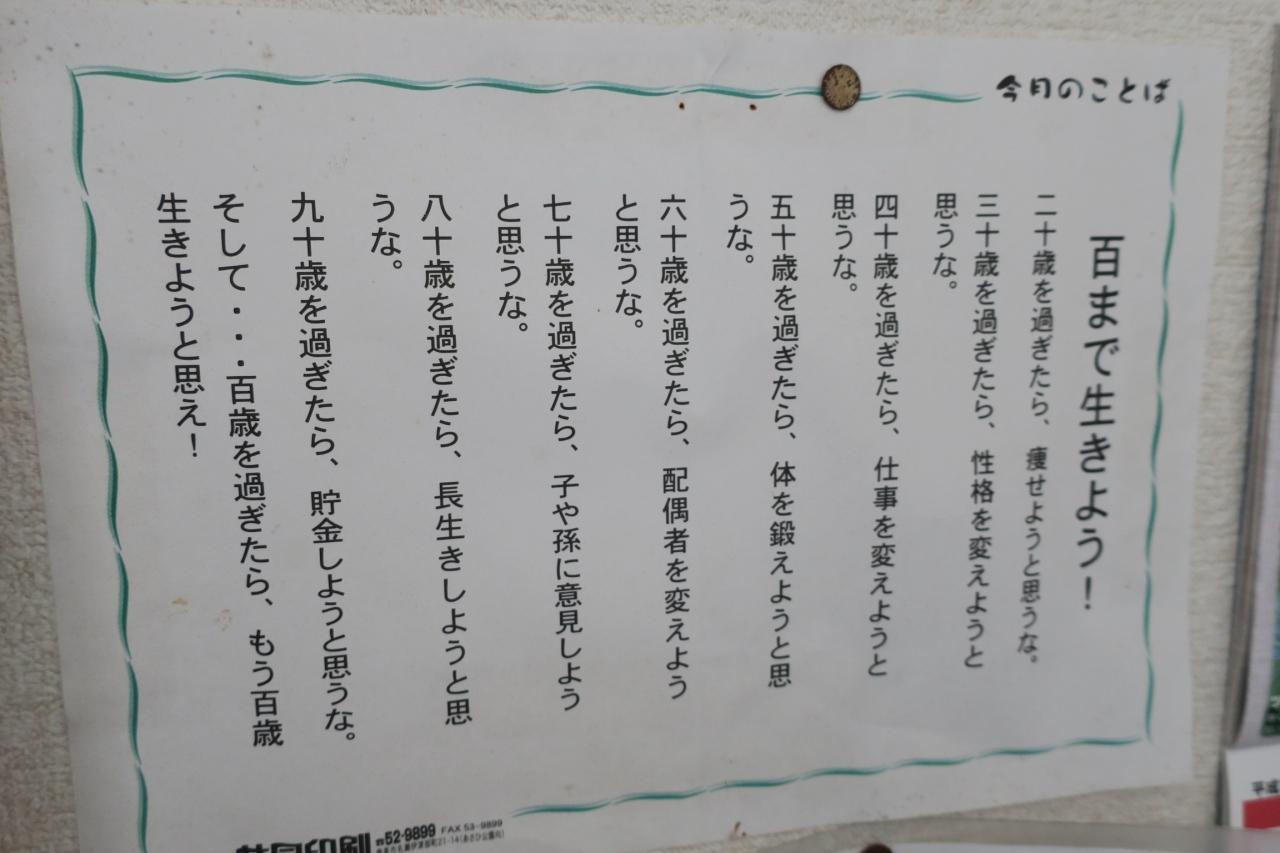 今月のことば
百まで生きよう！
二十歳を過ぎたら、痩せようと思うな。
三十歳を過ぎたら、性格を変えようと
思うな。
四十歳を過ぎたら、仕事を変えようと
思うな。
五十歳を過ぎたら、体を鍛えようと思
うな。
六十歳を過ぎたら、配偶者を変えよう
と思うな。
七十歳を過ぎたら、子や孫に意見しよう
と思うな。
八十歳を過ぎたら、長生きしようと思
うな。
九十歳を過ぎたら、貯金しようと思うな。
そして・・・百歳を過ぎたら、もう百歳
生きようと思え！
☎52-9899 FAX 53-9899
平成